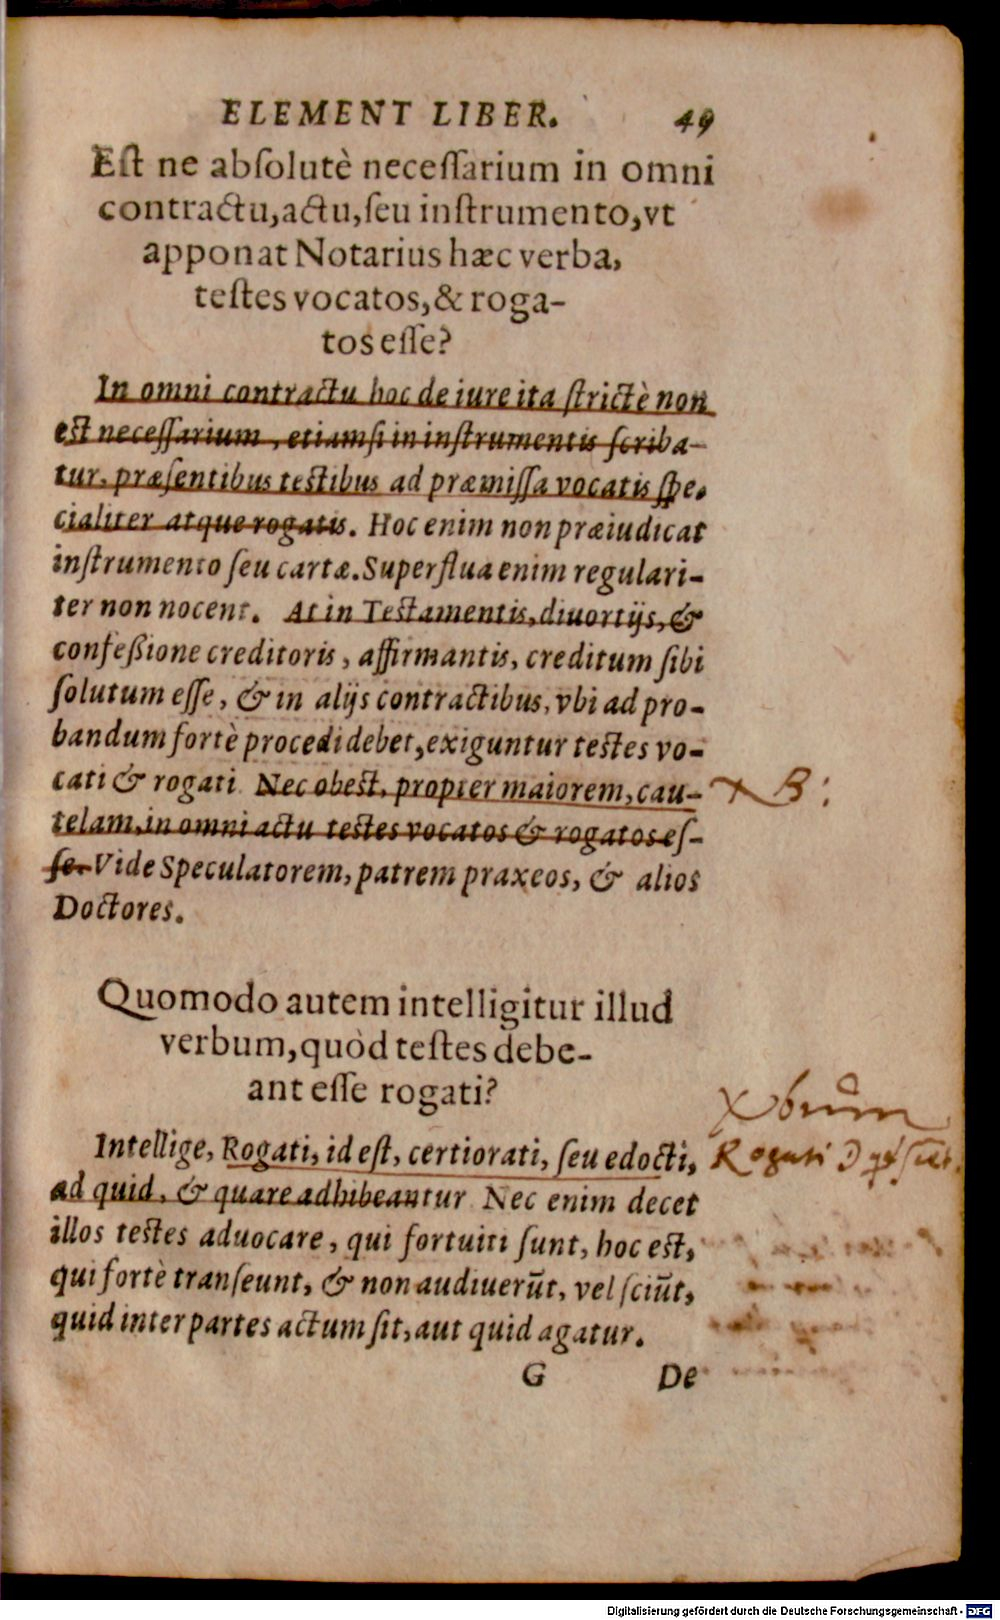 ELEMENT LIBER. 49
Eſt ne abſolutè neceſſarium in omni
contractu, actu, ſeu inſtrumento, vt
apponat Notarius hæc verba,
teſtes vocatos, & roga-
tos eſſe?
In omni contractu hoc de iure ita ſtrictè non
eſt neceſſarium, etiamſi in inſtrumentis ſcriba-
tur, præſentibus teſtibus ad præmiſſa vocatis ſpe-
cialiter atque rogatis. Hoc enim non præiudicat
inſtrumento ſeu cartæ. Superflua enim regulari-
ter non nocent. At in Teſtamentis, diuortijs, &
confeßione creditoris, affirmantis, creditum ſibi
ſolutum eſſe, & in alijs contractibus, vbi ad pro-
bandum fortè procedi debet, exiguntur teſtes vo-
cati & rogati. Nec obeſt, propter maiorem, cau-
telam, in omni actu teſtes vocatos & rogatos eſ-
ſe. Vide Speculatorem, patrem praxeos, & alios
Doctores.
Quomodo autem intelligitur illud
verbum, quòd teſtes debe-
ant eſſe rogati?
Intellige, Rogati, id eſt, certiorati, ſeu edocti,
ad quid, & quare adhibeantur. Nec enim decet
illos teſtes aduocare, qui fortuiti ſunt, hoc eſt,
qui fortè tranſeunt, & non audiuerūt, vel ſciūt,
quid inter partes actum ſit, aut quid agatur.
G De
B:
Rogati
Digitalisierung gefördert durch die Deutsche Forschungsgemeinschaft - DFG